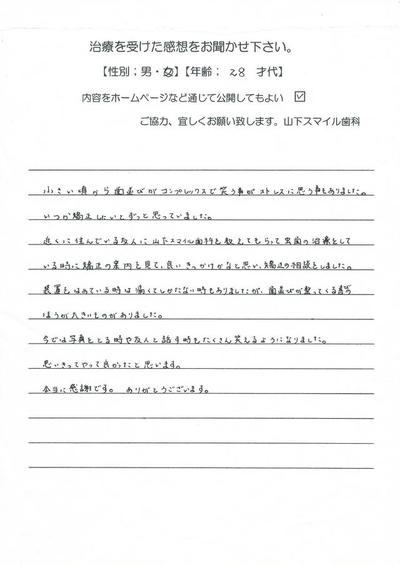 治療を受けた感想をお聞かせ下さい。
【性別；男・女】【年齢； 28 才代】
内容をホームページなど通じて公開してもよい ☑
ご協力、宜しくお願い致します。山下スマイル歯科
小さい頃から歯並びがコンプレックスで笑う事がストレスに思う事もありました。
いつか矯正したいとずっと思っていました。
近くに住んでいる友人に山下スマイル歯科を教えてもらって虫歯の治療をして
いる時に矯正の案内を見て、良いきっかけかなと思い、矯正の相談をしました。
装置をはめている時は痛くてしかたない時もありましたが、歯並びが整ってくる喜びの
ほうが大きいものがありました。
今では写真をとる時や友人と話す時もたくさん笑えるようになりました。
思いきってやって良かったと思います。
本当に感謝です。 ありがとうございます。